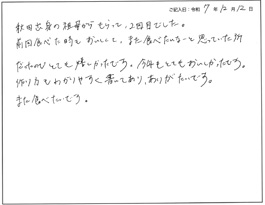 ご記入日：令和 7 年 12 月 12 日
秋田出身の祖母からもらって、2回目でした。
前回食べた時もおいしくて、また食べたいなーと思っていた所
だったのでとても嬉しかったです。今年もとてもおいしかったです。
作り方もわかりやすく書いてあり、ありがたいです。
また食べたいです。